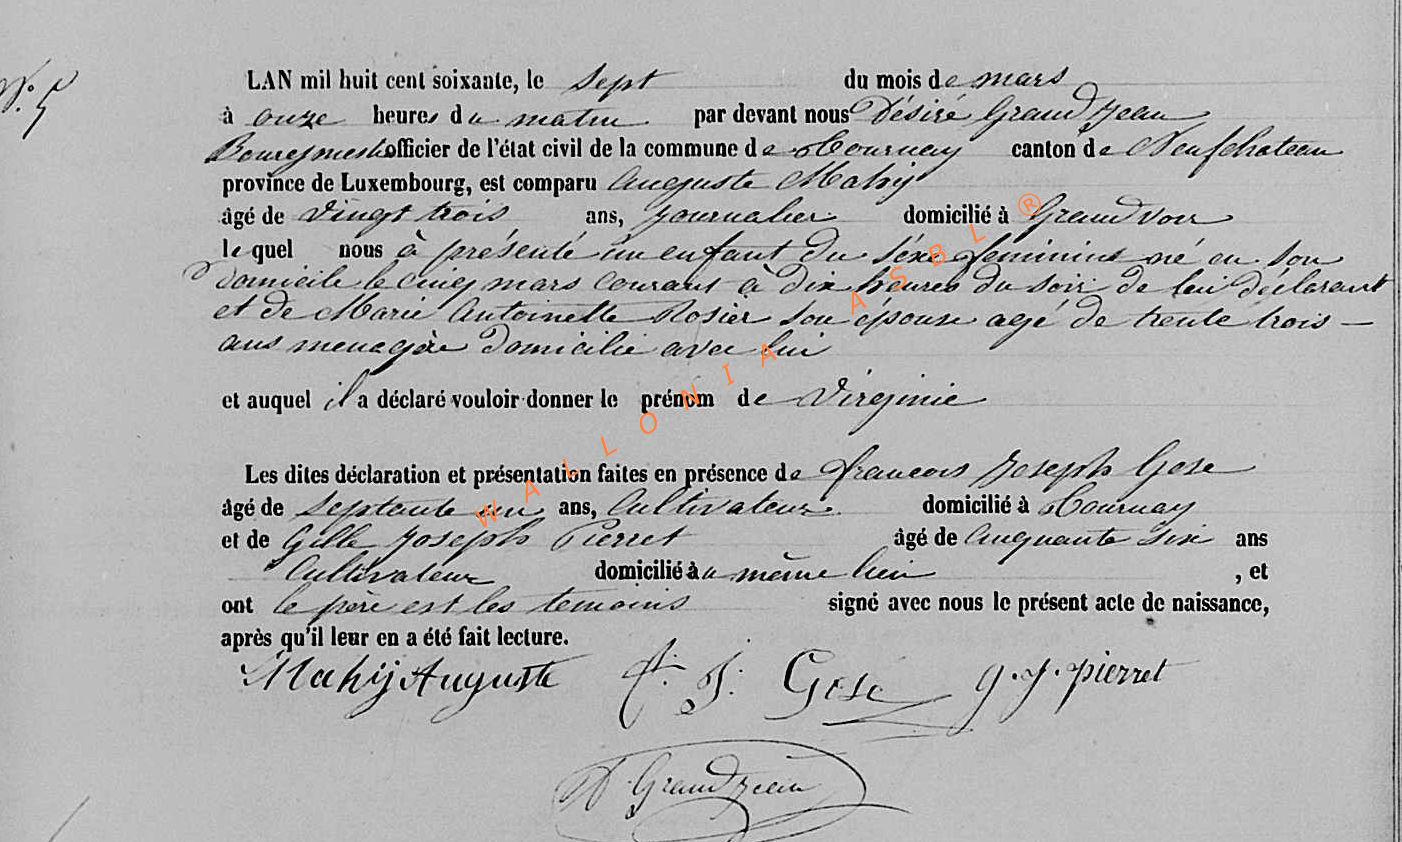 N° 5
LAN mil huit cent soixante, le sept du mois de mars
à onze heures du matin par devant nous Désiré GrandJean
Bourgmestre officier de l'état civil de la commune de Tournay canton de Neufchateau
province de Luxembourg, est comparu Auguste Mahij
âgé de vingt trois ans, journalier domicilié à Grandvoir
lequel nous à présenté un enfant du séxe feminin né en son
domicile le cinq mars courant à dix heures du soir de lui déclarant
et de Marie Antoinette Rosier son épouse agé de trente trois —
ans menagère domicilié avec lui
et auquel il a déclaré vouloir donner le prénom de Virginie
Les dites déclaration et présentation faites en présence de francois Joseph Gose
âgé de septante un ans, Cultivateur domicilié à Tournay
et de Gille Joseph Pierret âgé de Cinquante Six ans
Cultivateur domicilié au même lieu , et
ont le père est les temoins signé avec nous le présent acte de naissance,
après qu'il leur en a été fait lecture.
Mahij Auguste f. J. Gosé g. J. pierret
D. GrandJean
WALLONIA ASBL ®